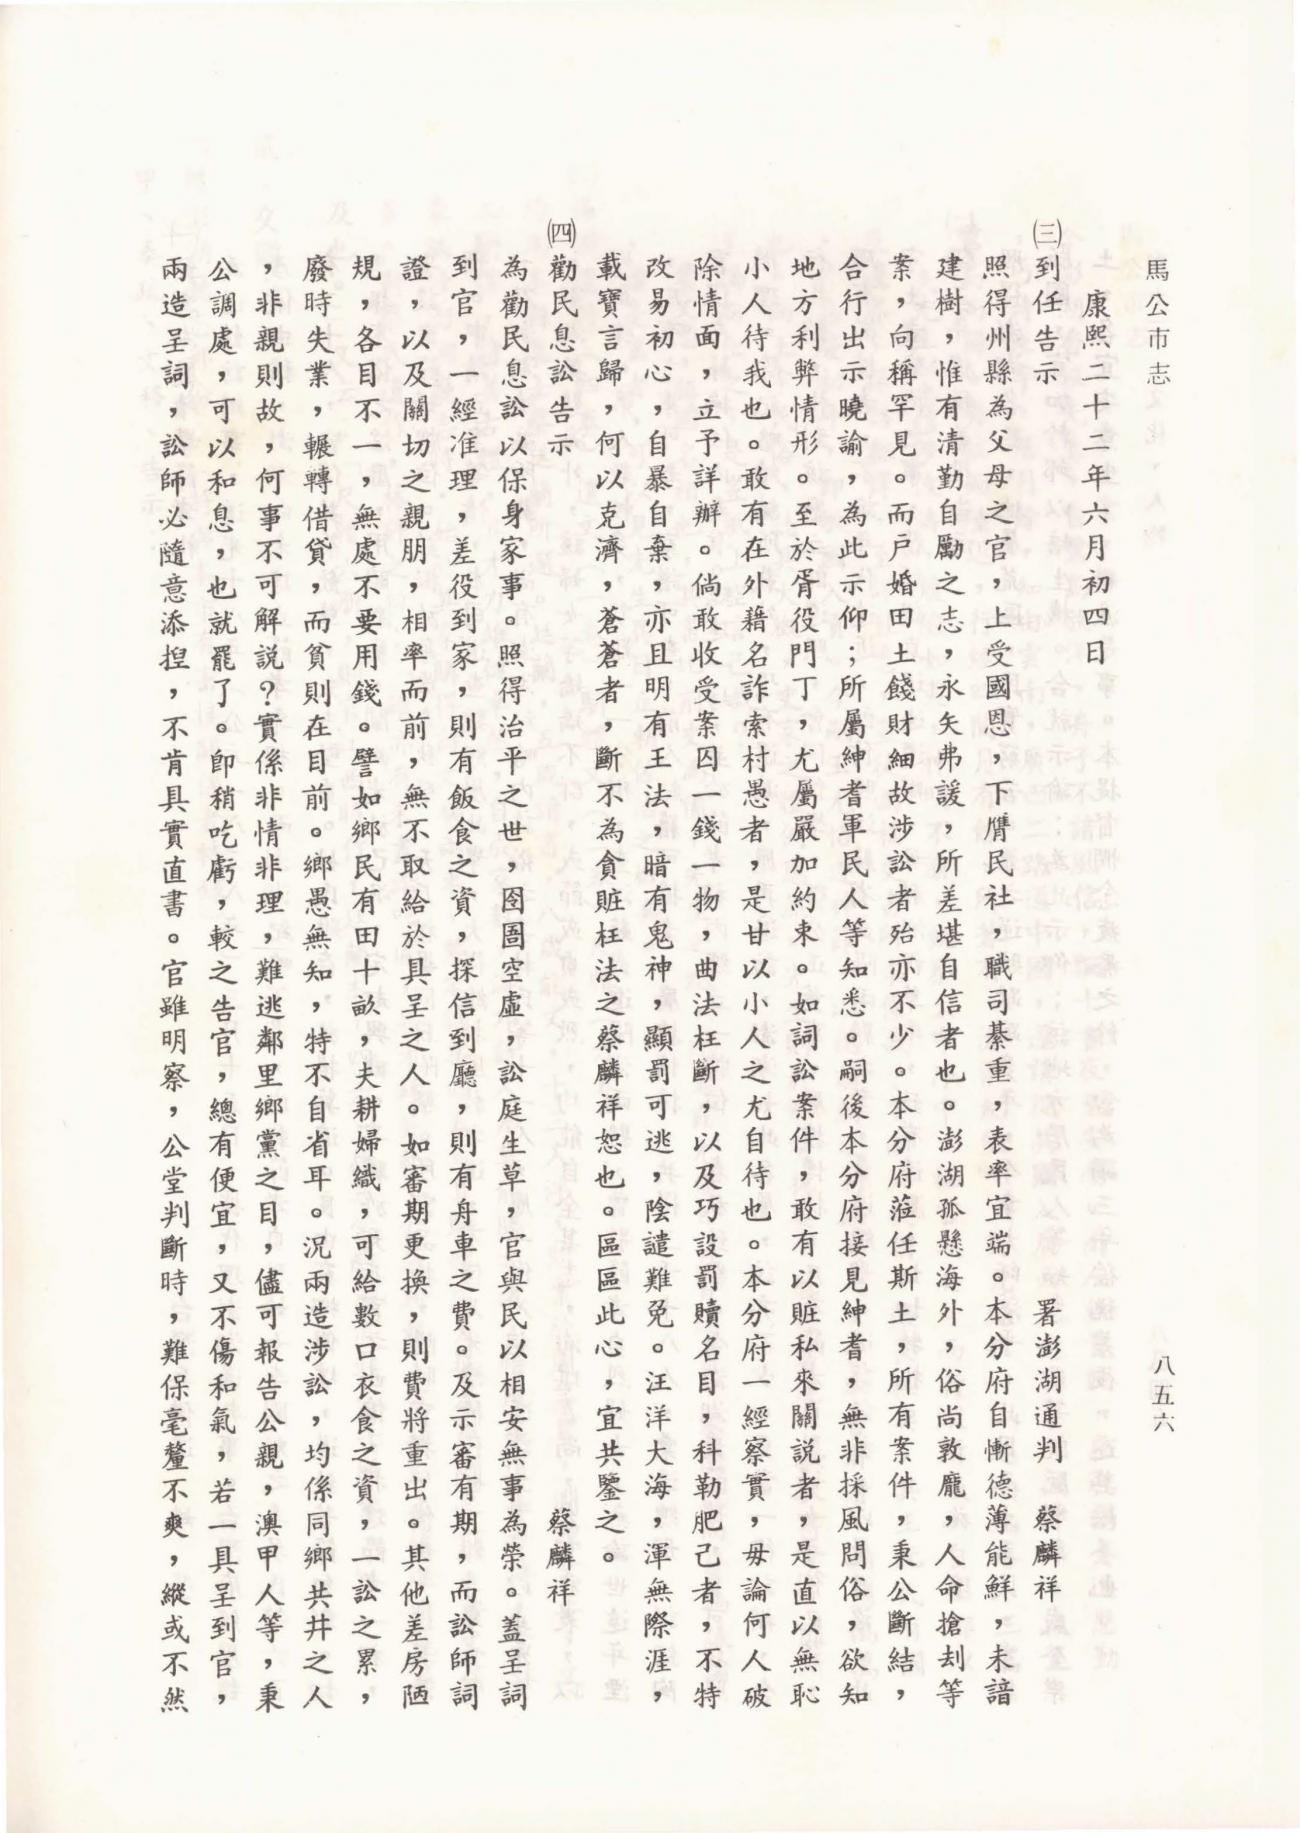 馬公市志
八五六
康熙二十二年六月初四日
㈢到任告示 署澎湖通判 蔡麟祥
照得州縣為父母之官，上受國恩，下膺民社，職司綦重，表率宜端。本分府自慚德薄能鮮，未諳
建樹，惟有清勤自勵之志，永矢弗諼，所差堪自信者也。澎湖孤懸海外，俗尚敦龐，人命搶刦等
案，向稱罕見。而戶婚田土錢財細故涉訟者殆亦不少。本分府蒞任斯土，所有案件，秉公斷結，
合行出示曉諭，為此示仰；所屬紳耆軍民人等知悉。嗣後本分府接見紳耆，無非採風問俗，欲知
地方利弊情形。至於胥役門丁，尤屬嚴加約束。如詞訟案件，敢有以賍私來關說者，是直以無恥
小人待我也。敢有在外藉名詐索村愚者，是甘以小人之尤自待也。本分府一經察實，毋論何人破
除情面，立予詳辦。倘敢收受案囚一錢一物，曲法枉斷，以及巧設罰贖名目，科勒肥己者，不特
改易初心，自暴自棄，亦且明有王法，暗有鬼神，顯罰可逃，陰譴難免。汪洋大海，渾無際涯，
載寶言歸，何以克濟，蒼蒼者，斷不為貪賍枉法之蔡麟祥恕也。區區此心，宜共鑒之。
㈣勸民息訟告示 蔡麟祥
為勸民息訟以保身家事。照得治平之世，囹圄空虛，訟庭生草，官與民以相安無事為榮。蓋呈詞
到官，一經准理，差役到家，則有飯食之資，探信到廳，則有舟車之費。及示審有期，而訟師詞
證，以及關切之親朋，相率而前，無不取給於具呈之人。如審期更換，則費將重出。其他差房陋
規，各目不一，無處不要用錢。譬如鄉民有田十畝，夫耕婦織，可給數口衣食之資，一訟之累，
廢時失業，輾轉借貸，而貧則在目前。鄉愚無知，特不自省耳。況兩造涉訟，均係同鄉共井之人
，非親則故，何事不可解說？實係非情非理，難逃鄰里鄉黨之目，儘可報告公親，澳甲人等，秉
公調處，可以和息，也就罷了。卽稍吃虧，較之告官，總有便宜，又不傷和氣，若一具呈到官，
兩造呈詞，訟師必隨意添揑，不肯具實直書。官雖明察，公堂判斷時，難保毫釐不爽，縱或不然